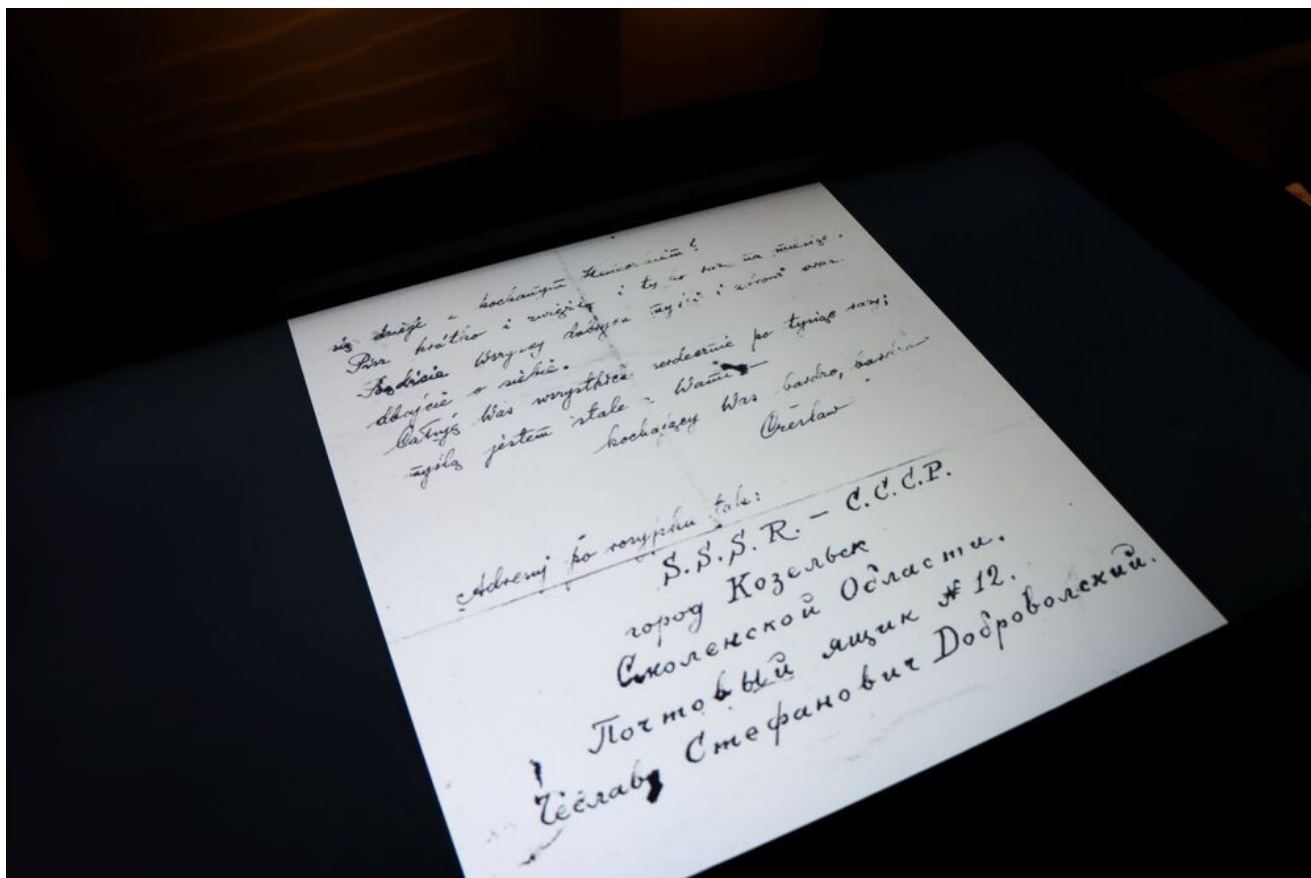 się dzieje z kochanym
Pisz krótko i zwięźle i tylko raz na miesiąc.
Bądźcie wszyscy dobrej myśli i zdrowi oraz
dbajcie o siebie.
Całuję Was wszystkich serdecznie po tysiąc razy;
myślą jestem stale z Wami —
kochający Was bardzo, bardzo
Czesław
Adresuj po rosyjsku tak:
S.S.S.R. – С.С.С.Р.
город Козельск
Смоленской Области.
Почтовый ящик № 12.
Чеслав Стефанович Добровольский.